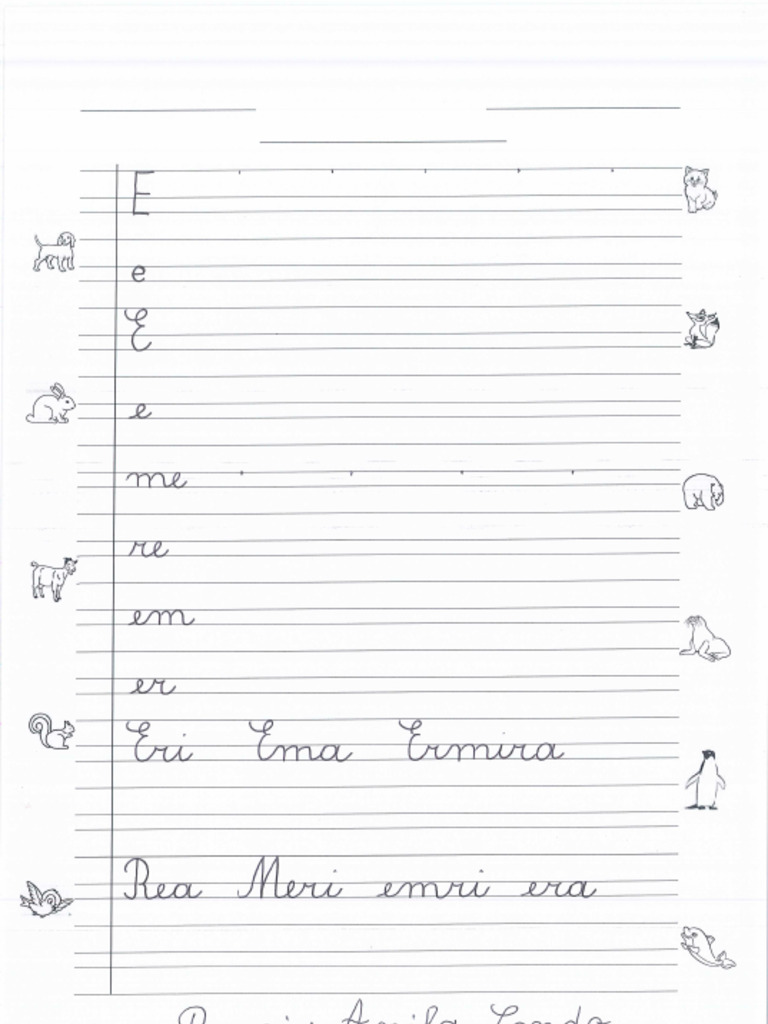 E
e
E
e
me
re
em
er
Eri Ema Ermira
Rea Meri emri era